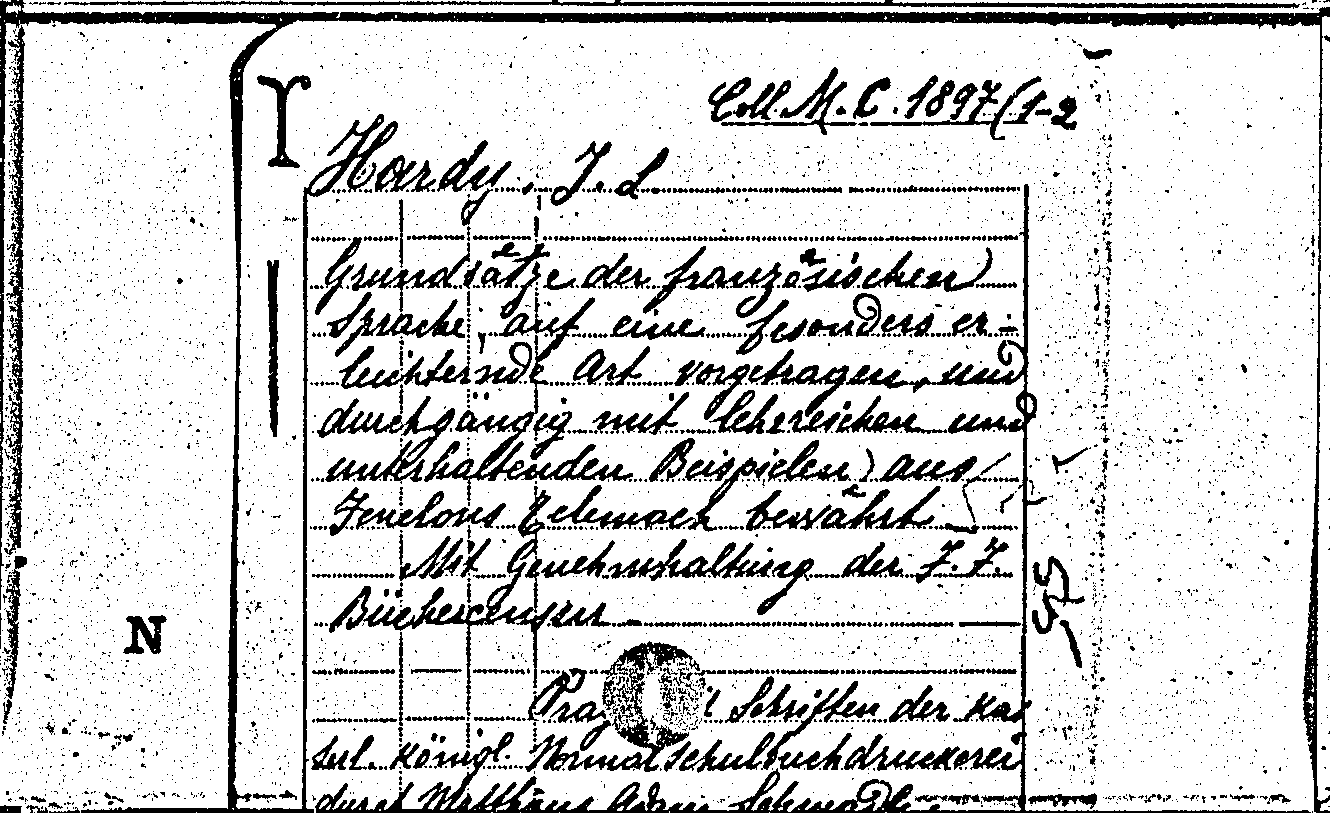 Coll. M. C. 1897/1-2
Hardy, J. L.
Grundsätze der französischen
Sprache, auf eine besonders er-
leichternde Art vorgetragen, und
durchgängig mit lehrreichen und
unterhaltenden Beispielen aus
Fenelons Telemach bewährt
Mit Genehmhaltung der J. J.
Büchercensur
Prag Schriften der kai
serl. königl. Normalschulbuchdruckerei
durch Matthäus Adam
N